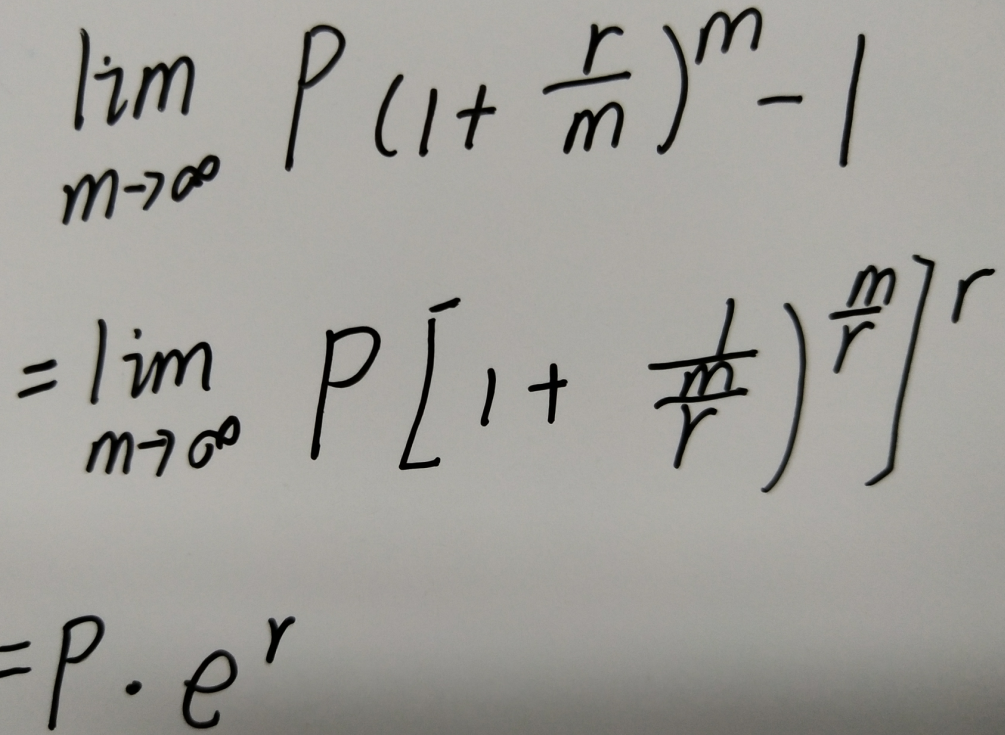 lim m→∞ P(1+ r/m)^m - 1
= lim m→∞ P[1+ 1/(m/r))^(m/r)]^r
= P · e^r